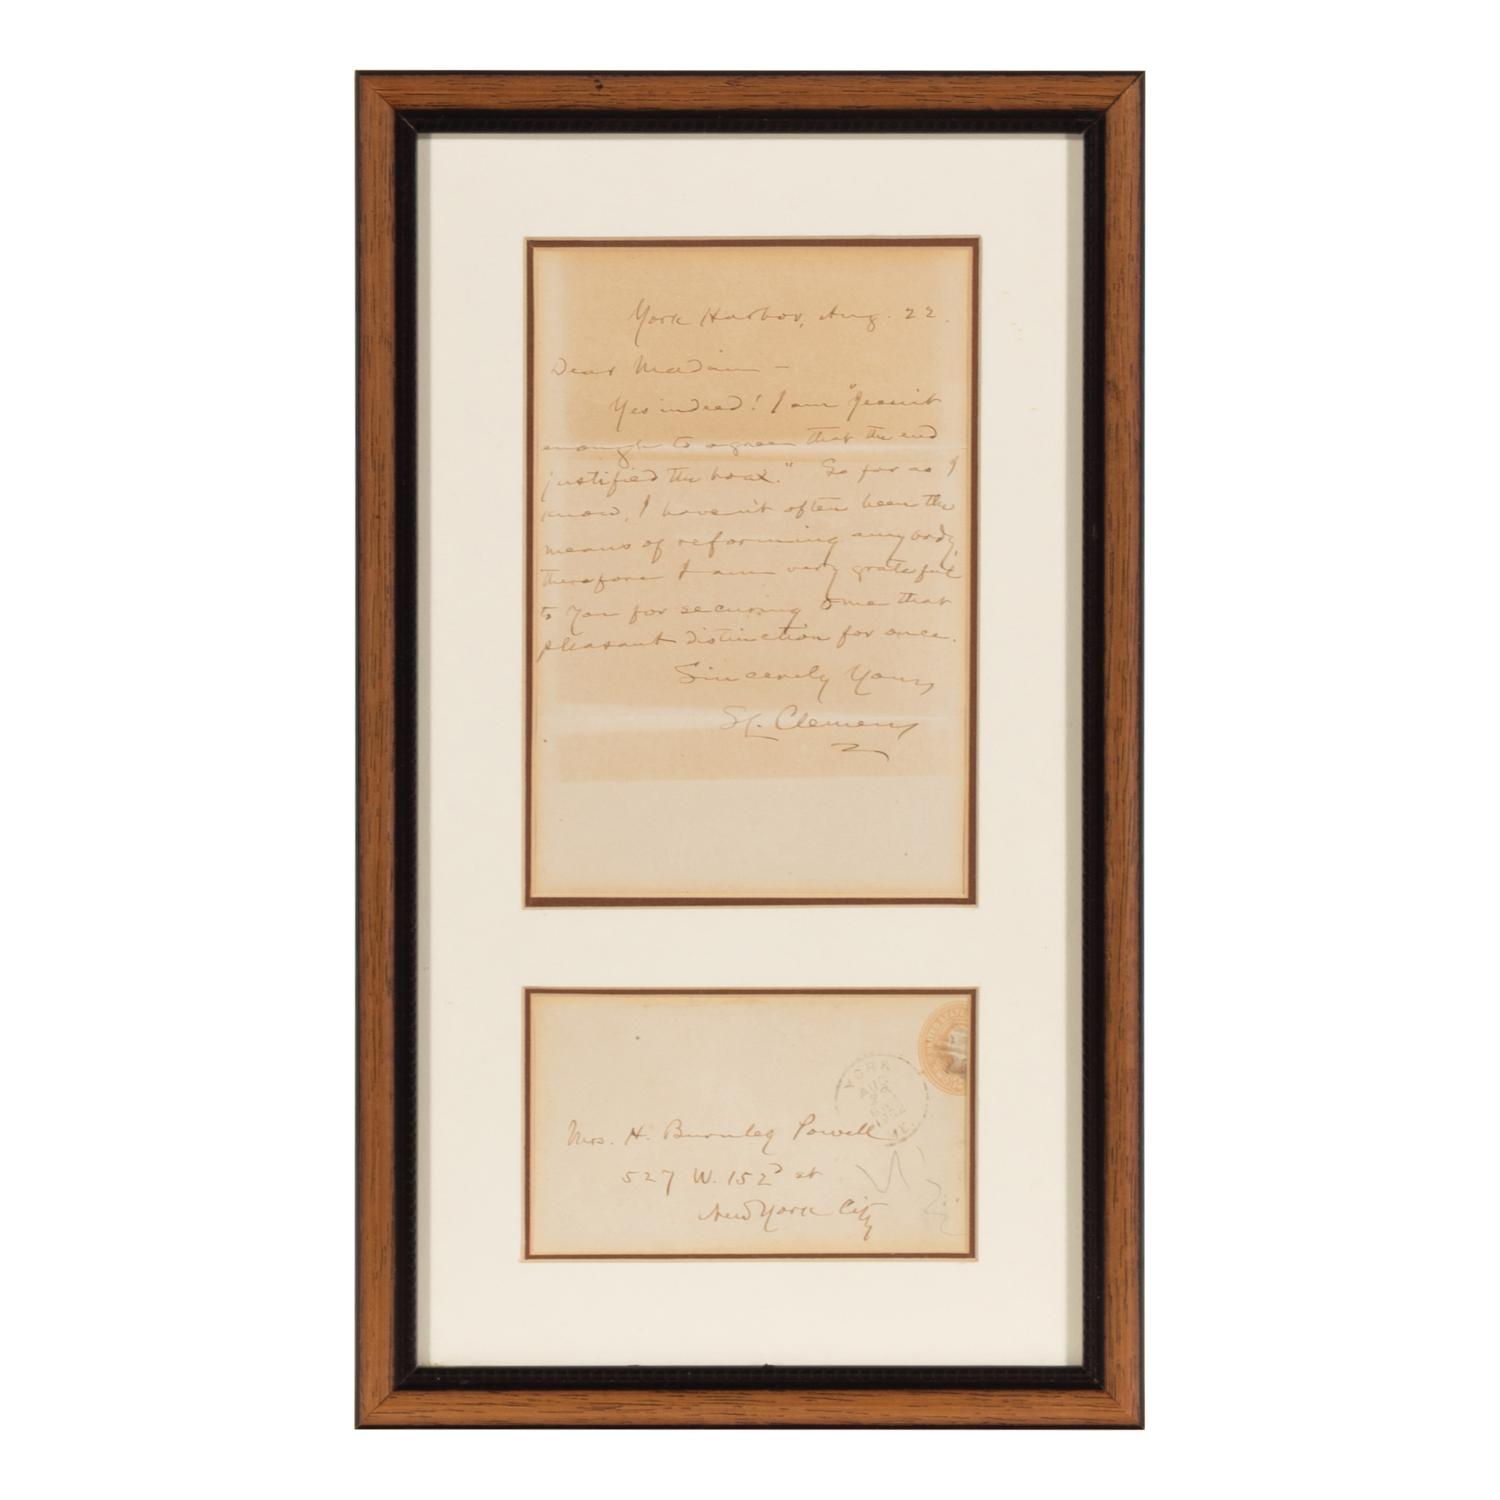 York Harbor, Aug. 22.
Dear Madam —
Yes indeed! I am "Jesuit
enough to agree that the end
justified the hoax." So far as I
know, I haven't often been the
means of reforming anybody,
therefore I am very grateful
to you for securing to me that
pleasant distinction for once.
Sincerely Yours
SL. Clemens
YORK
AUG
Mrs. H. Burnley Powell
527 W. 152d st
New York City